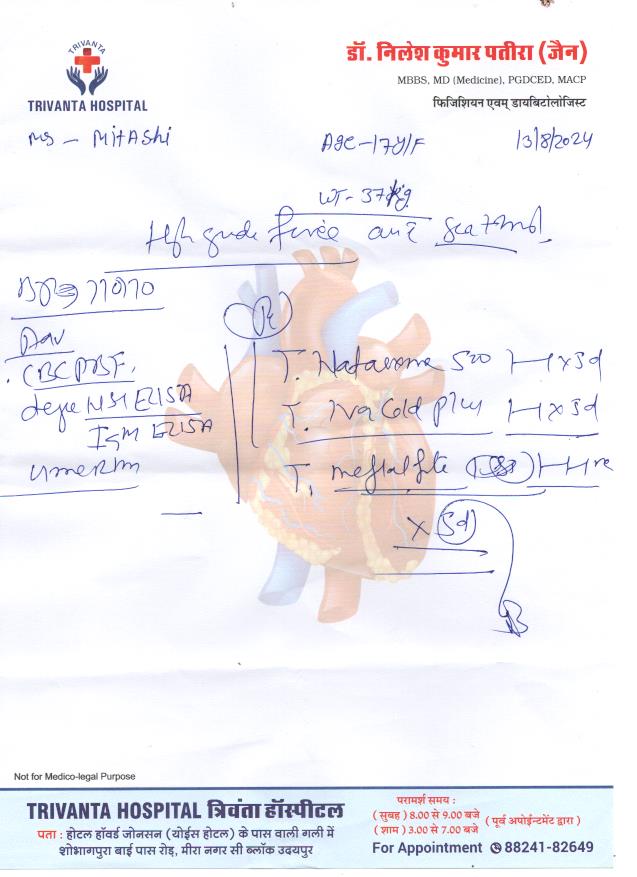 TRIVANTA
TRIVANTA HOSPITAL
डॉ. निलेश कुमार पतीरा (जैन)
MBBS, MD (Medicine), PGDCED, MACP
फिजिशियन एवम् डायबिटोलोजिस्ट
Ms - Mitashi Age - 17y/F 13/8/2024
WT - 37kg
High grade
Adv
CBC PBF,
NS1 ELISA
IgM ELISA
Urine R/m
T. 500 x 5d
T. Cold plus x 5d
T.
x 5d
Not for Medico-legal Purpose
TRIVANTA HOSPITAL त्रिवंता हॉस्पीटल
पता : होटल हॉवर्ड जोनसन (योईस होटल) के पास वाली गली में
शोभागपुरा बाई पास रोड़, मीरा नगर सी ब्लॉक उदयपुर
परामर्श समय :
( सुबह ) 8.00 से 9.00 बजे
( शाम ) 3.00 से 7.00 बजे
( पूर्व अपोईन्टमेंट द्वारा )
For Appointment 88241-82649